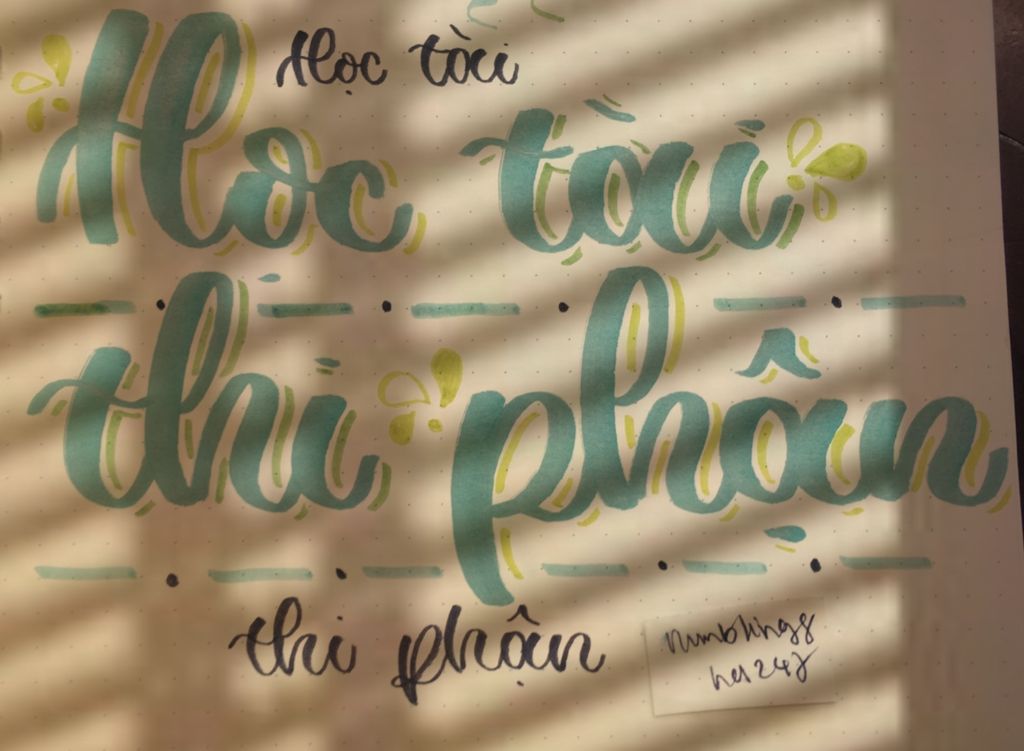 Học tài
Học tài
thi phận
thi phận